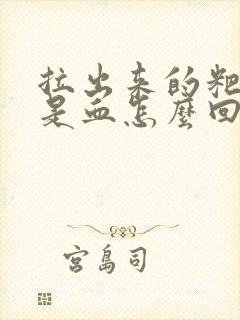 拉出来的粑
是血怎麼回
宮島司